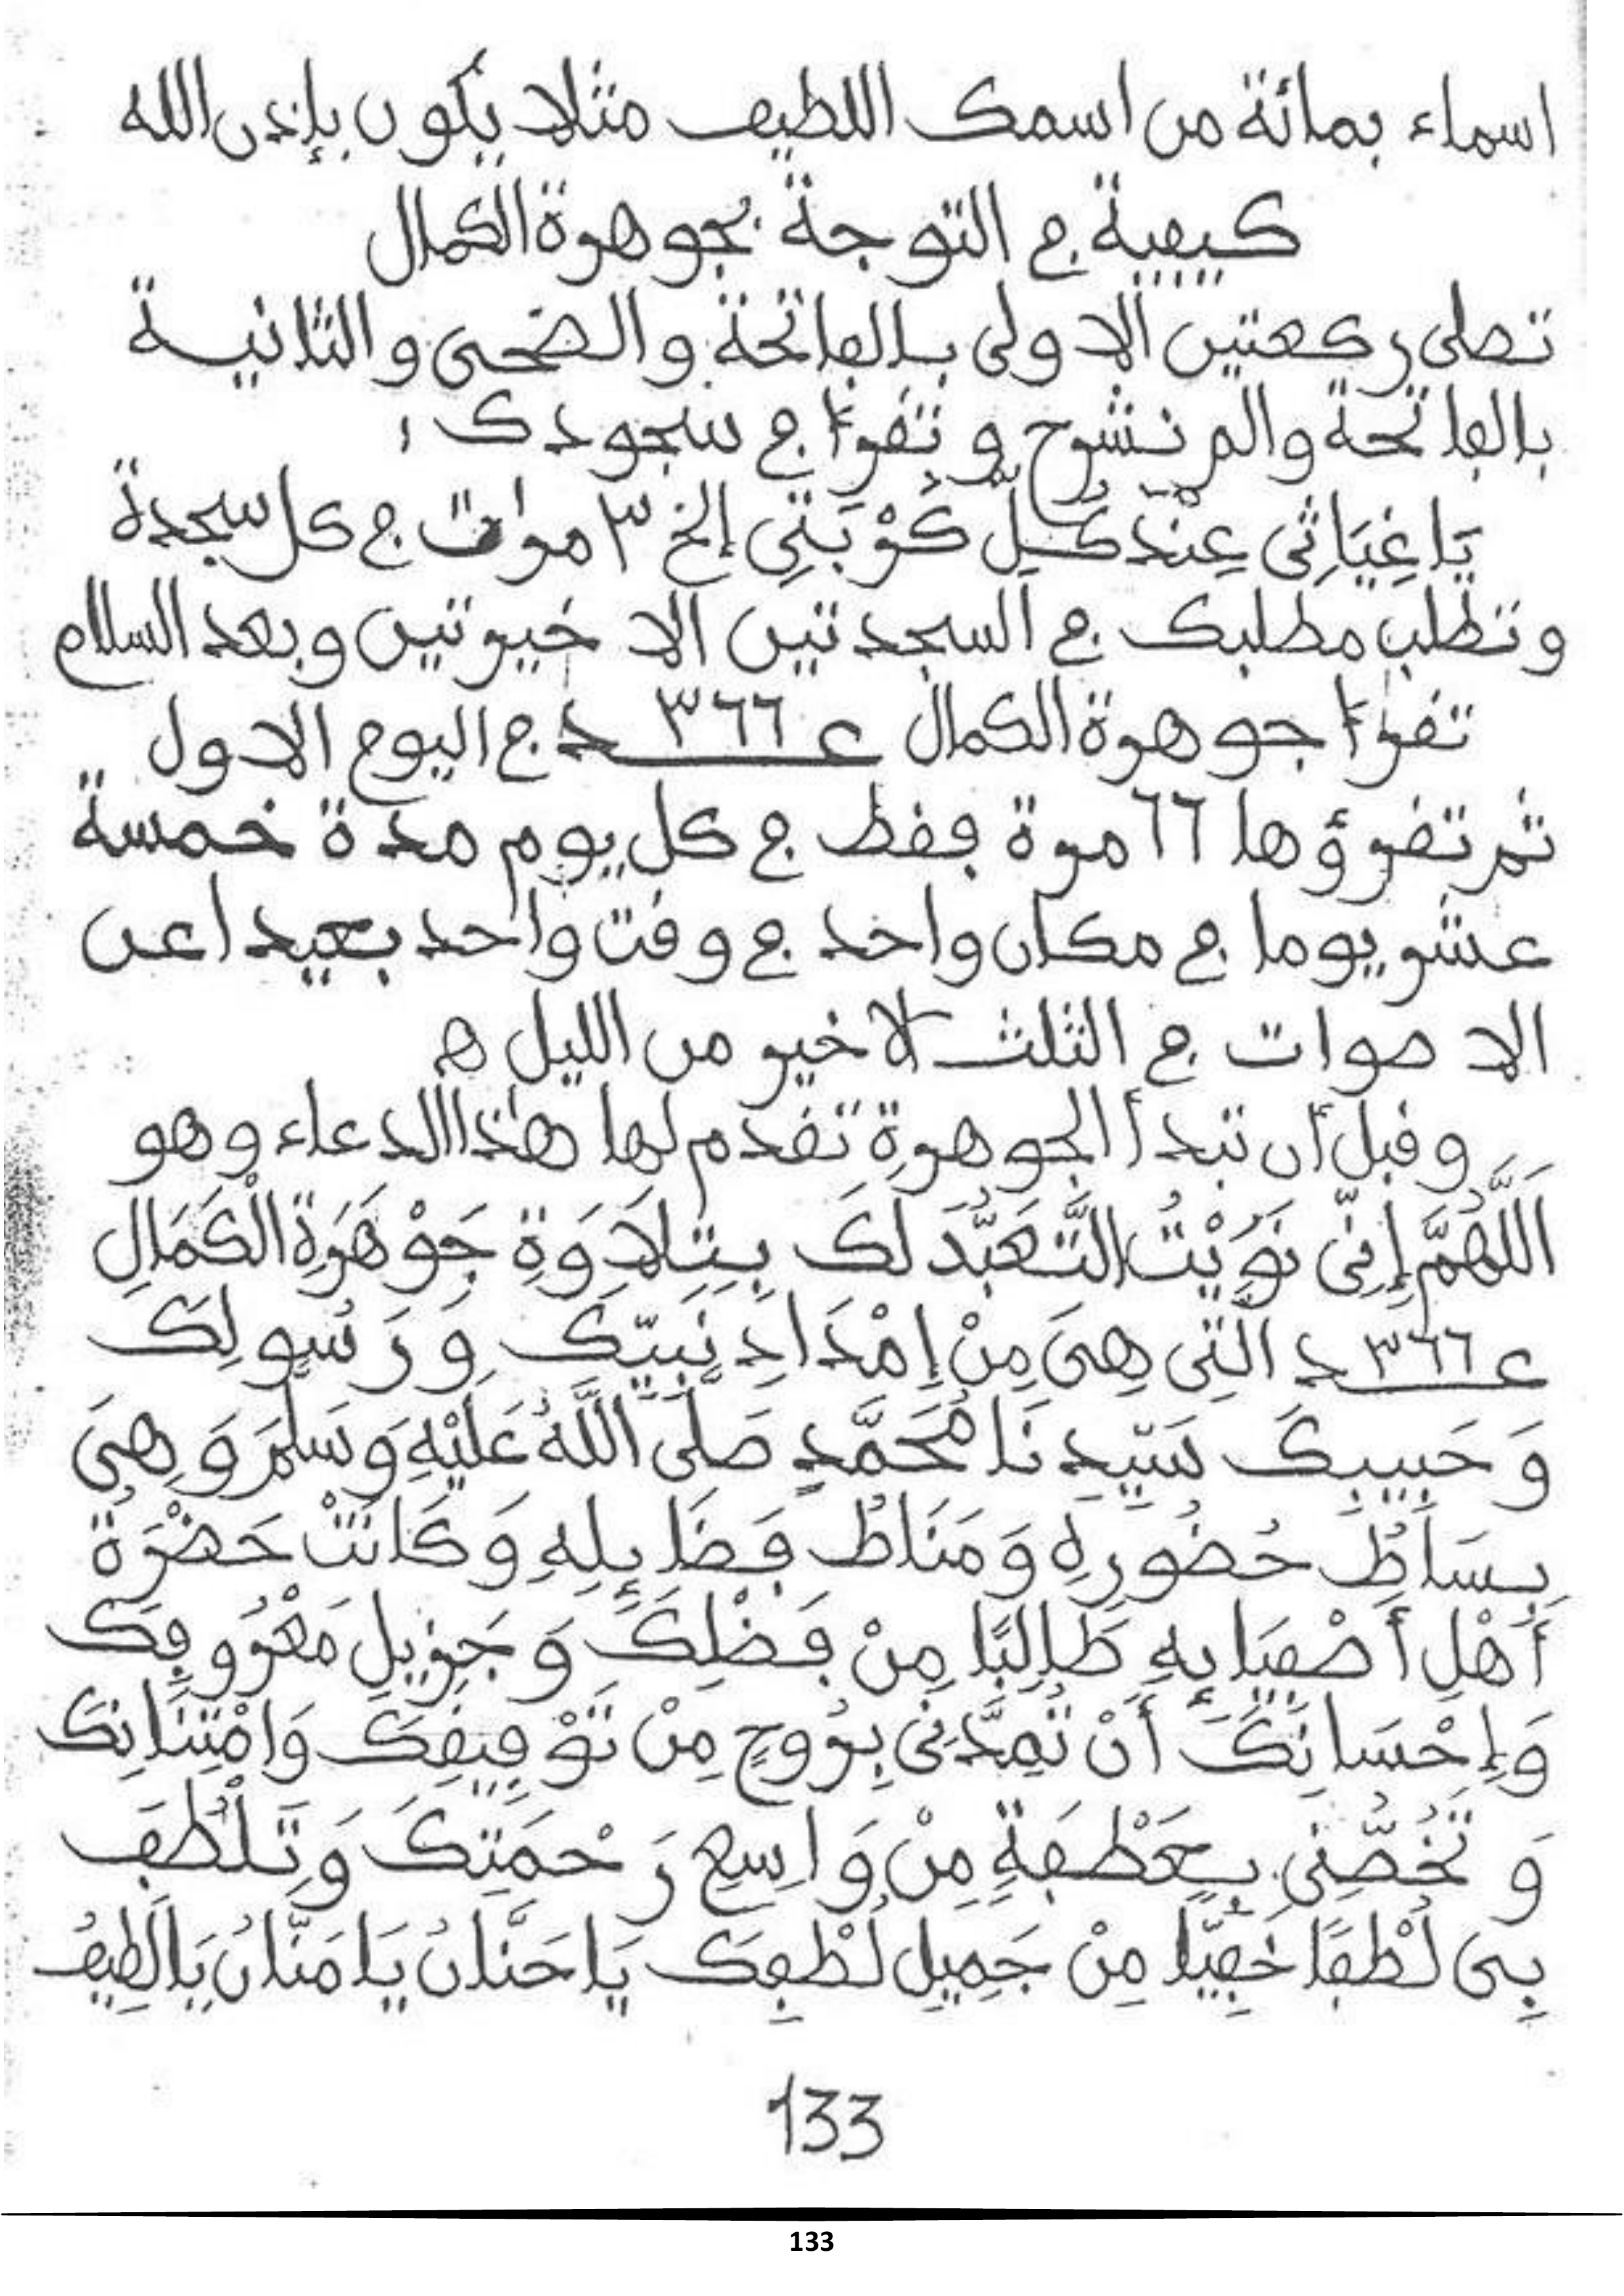 اسماء بمائة من اسمك اللطيف مثلا يكون بإذن الله
كيفية في التوجة بجوهرة الكمال
تصلى ركعتين الاولى بالفاتحة والضحى والثانية
بالفاتحة والم نشرح وتقرأ في سجودك :
يَا غِيَاثِى عِنْدَ كُلِّ كُرْبَتِى إلخ ٣ مرات في كل سجدة
وتطلب مطلبك في السجدتين الاخيرتين وبعد السلام
تقرأ جوهرة الكمال عـ ٣٦٦ ـدد في اليوم الاول
ثم تقرؤها ٦٦ مرة فقط في كل يوم مدة خمسة
عشر يوما في مكان واحد في وقت واحد بعيدا عن
الاصوات في الثلث الاخير من الليل ه
وقبل أن تبدأ الجوهرة تقدم لها هذا الدعاء وهو
اَللَّهُمَّ إِنِّى نَوَيْتُ التَّعَبُّدَ لَكَ بِتِلَاوَةِ جَوْهَرَةِ الْكَمَالِ
عـ ٣٦٦ ـدد الَّتِى هِىَ مِنْ إِمْدَادِ نَبِيِّكَ وَرَسُولِكَ
وَحَبِيبِكَ سَيِّدِنَا مُحَمَّدٍ صَلَّى اللَّهُ عَلَيْهِ وَسَلَّمَ وَهِىَ
بِسَاطُ حُضُورِهِ وَمَنَاطُ فَضَايِلِهِ وَكَانَتْ حَضْرَةُ
أَهْلِ أَصْفِيَايِهِ طَالِبًا مِنْ فَضْلِكَ وَجَزِيلِ مَعْرُوفِكَ
وَإِحْسَانِكَ أَنْ تُمِدَّنِى بِرُوحٍ مِنْ تَوْفِيقِكَ وَامْتِنَانِكَ
وَتَخُصَّنِى بِعَطْفَةٍ مِنْ وَاسِعِ رَحْمَتِكَ وَتَلْطُفَ
بِى لُطْفًا خَفِيًّا مِنْ جَمِيلِ لُطْفِكَ يَا حَنَّانُ يَا مَنَّانُ يَا لَطِيفُ
133
133